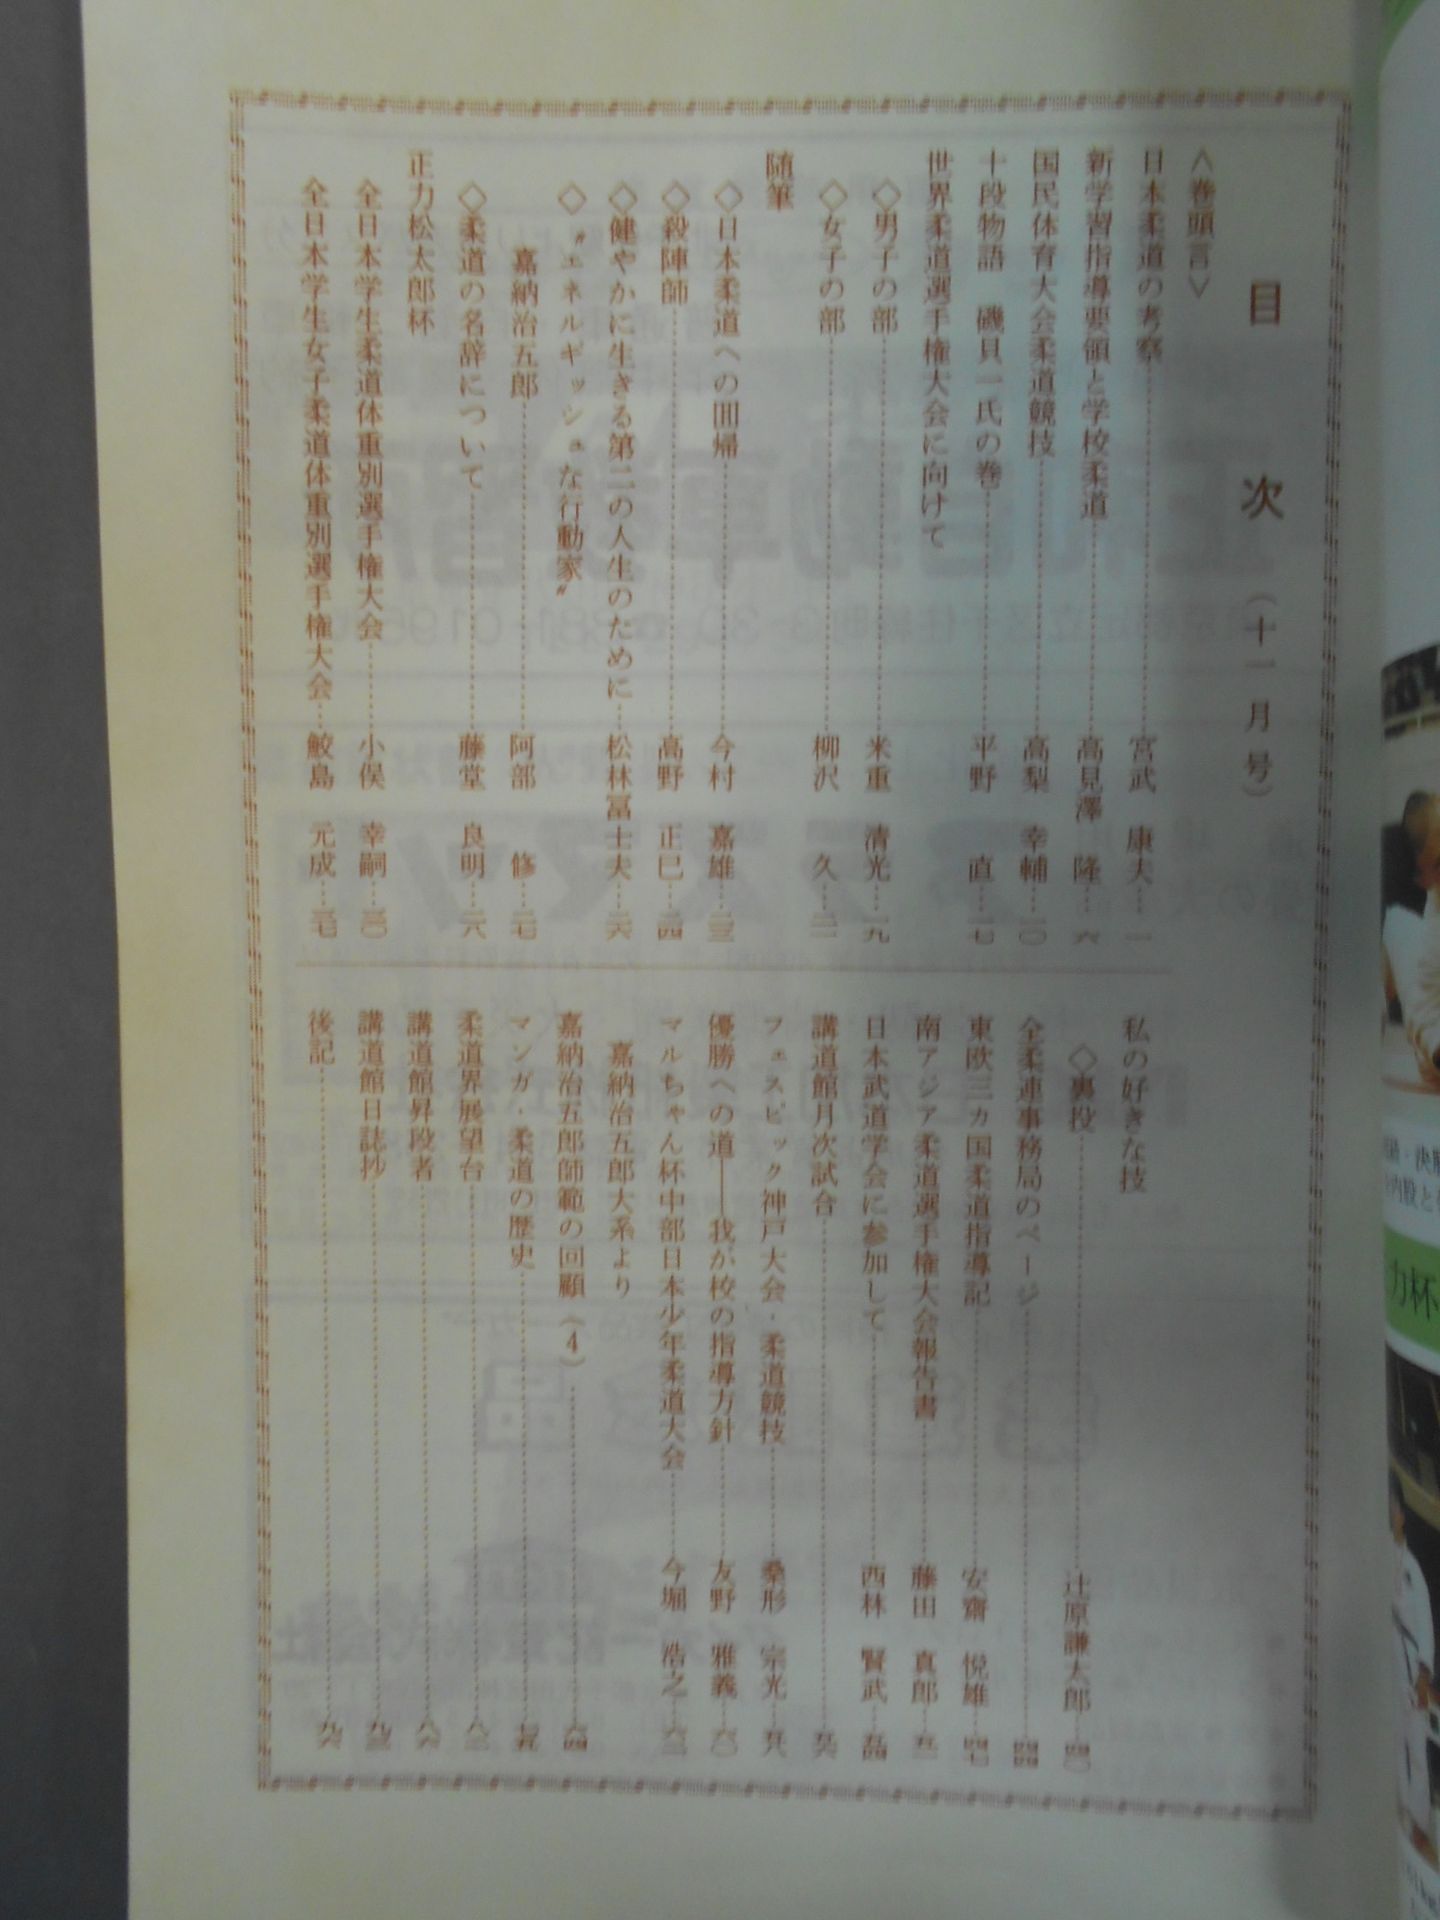 目次（十一月号）
＜巻頭言＞
日本柔道の考察……宮武　康夫…一
新学習指導要領と学校柔道……高見澤　隆…六
国民体育大会柔道競技……高梨　幸輔…一〇
十段物語　磯貝一氏の巻……平野　直…一七
世界柔道選手権大会に向けて
◇男子の部……米重　清光…一九
◇女子の部……柳沢　久…二一
随筆
◇日本柔道への回帰……今村　嘉雄…二三
◇殺陣師……高野　正巳…二四
◇健やかに生きる第二の人生のために…松林冨士夫…二六
◇〝エネルギッシュな行動家〟
嘉納治五郎……阿部　修…二七
◇柔道の名辞について……藤堂　良明…二八
正力松太郎杯
全日本学生柔道体重別選手権大会……小俣　幸嗣…三〇
全日本学生女子柔道体重別選手権大会…鮫島　元成…三七
私の好きな技
◇裏投……辻原謙太郎…四〇
全柔連事務局のページ……四四
東欧三カ国柔道指導記……安齋　悦雄…四七
南アジア柔道選手権大会報告書……藤田　真郎…五一
日本武道学会に参加して……西林　賢武…五四
講道館月次試合……五六
フェスピック神戸大会・柔道競技……桑形　宗光…五八
優勝への道――我が校の指導方針……友野　雅義…六〇
マルちゃん杯中部日本少年柔道大会……今堀　浩之…六二
嘉納治五郎大系より
嘉納治五郎師範の回顧（4）……六四
マンガ・柔道の歴史……七五
柔道界展望台……八二
講道館昇段者……八六
講道館日誌抄……九三
後記……九六
力杯